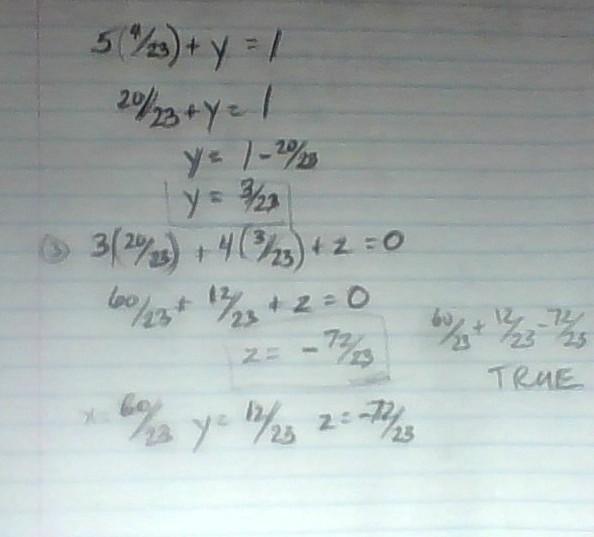 5(4/23) + y = 1
20/23 + y = 1
y = 1 - 20/23
y = 3/23
③ 3(20/23) + 4(3/23) + z = 0
60/23 + 12/23 + z = 0
z = - 72/23
60/23 + 12/23 - 72/23
TRUE
x = 60/23 y = 12/23 z = -72/23